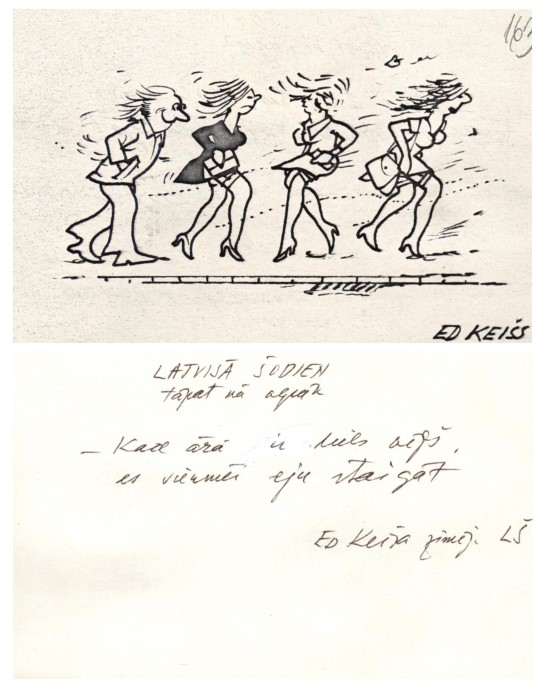 163
ED KEIŠS
LATVIJĀ ŠODIEN
tāpat kā agrāk
— Kad ārā ir liels vējš,
es vienmēr eju staigāt
ED Keiša zīmēj. LŠ